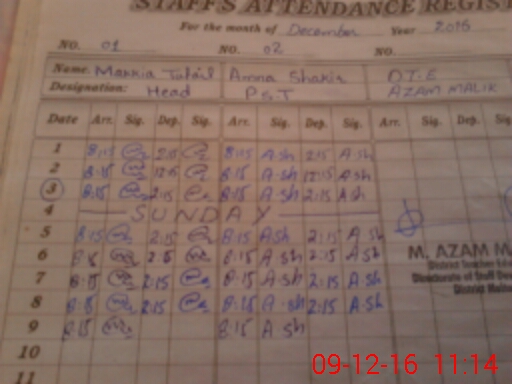 STAFF'S ATTENDANCE REGIST
For the month of December Year 2016
NO. 01 NO. 02 NO.
Name: Marria Amna Shakir D.T.E
Designation: Head P.S.T AZAM MALIK
Date Arr. Sig. Dep. Sig. Arr. Sig. Dep. Sig. Arr. Sig. Dep. Sig
1 8:15 2:15 8:15 A.Sh 2:15 A.Sh
2 8:15 12:15 8:15 A.Sh 12:15 A.Sh
3 8:15 2:15 8:15 A.Sh 2:15 A.Sh
4 SUNDAY
5 8:15 2:15 8:15 A.Sh 2:15 A.Sh
6 8:15 2:15 8:15 A.Sh 2:15 A.Sh
7 8:15 2:15 8:15 A.Sh 2:15 A.Sh
8 8:15 2:15 8:15 A.Sh 2:15 A.Sh
M. AZAM M
District Teacher
Directorate of Staff De
District
9 8:15 8:15 A.Sh
10
11
09-12-16 11:14